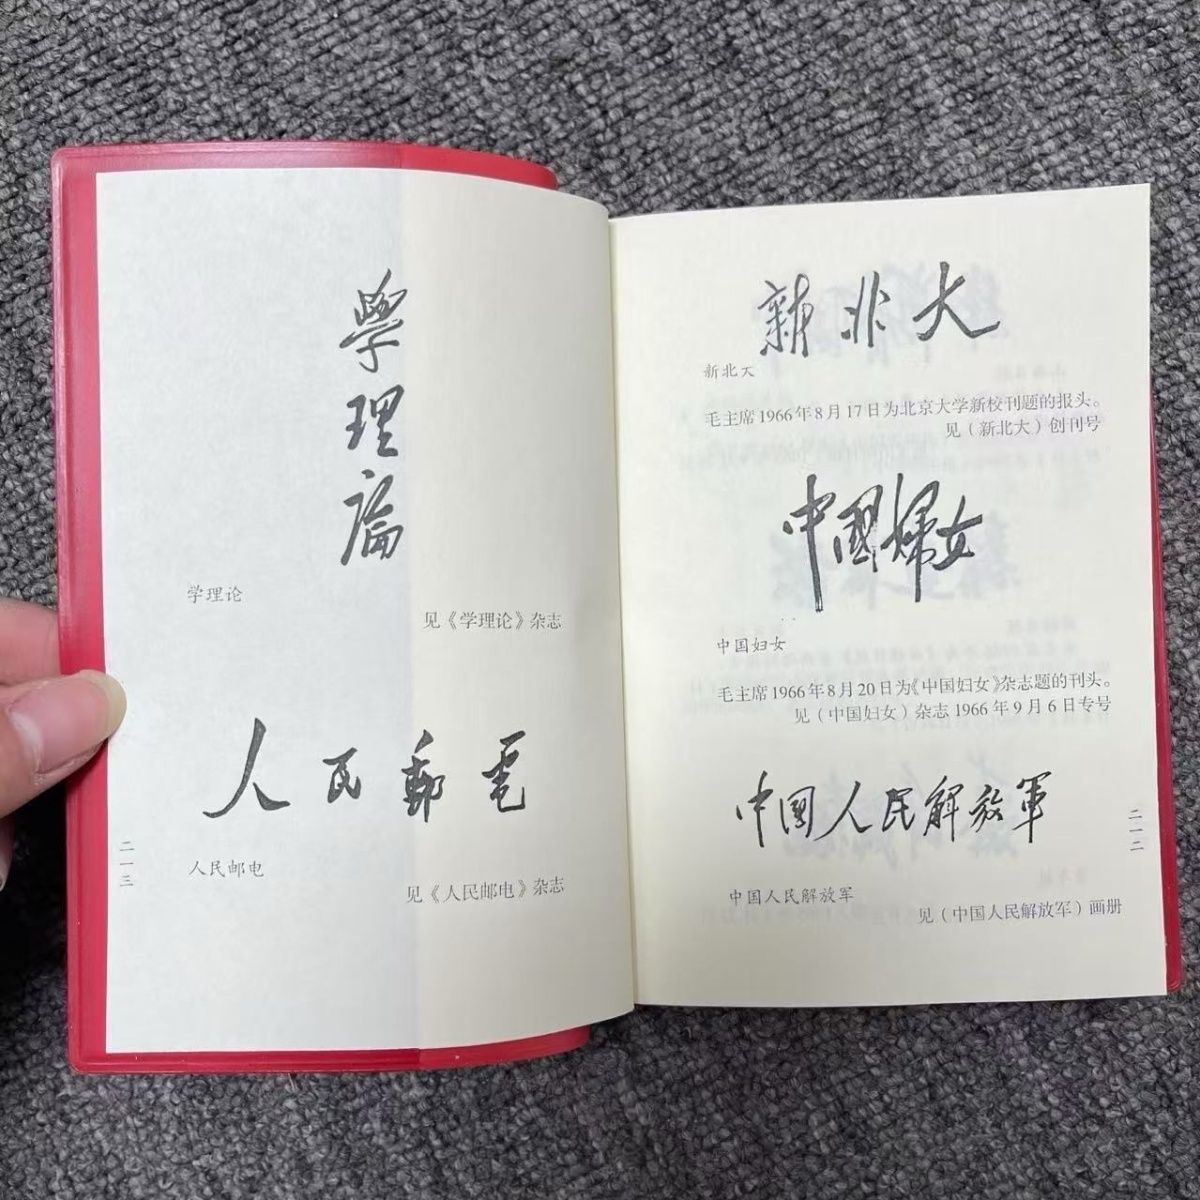 新北大
新北大
毛主席1966年8月17日为北京大学新校刊题的报头。
见（新北大）创刊号
中國婦女
中国妇女
毛主席1966年8月20日为《中国妇女》杂志题的刊头。
见（中国妇女）杂志1966年9月6日专号
中國人民解放軍
中国人民解放军
见（中国人民解放军）画册
二一二
學理論
学理论
见《学理论》杂志
人民郵電
人民邮电
见《人民邮电》杂志
二一三